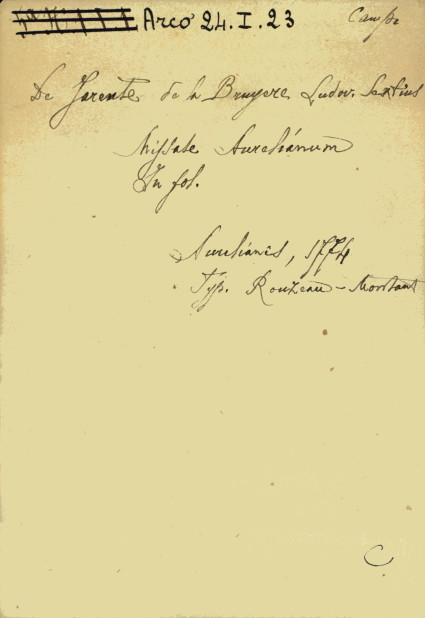 Arco 24. I. 23
De Jarente de la Bruyere Ludov. Sextius
Missale Aurelianum
In fol.
Aurelianis, 1774
Typ. Rouzeau-Montaut
C